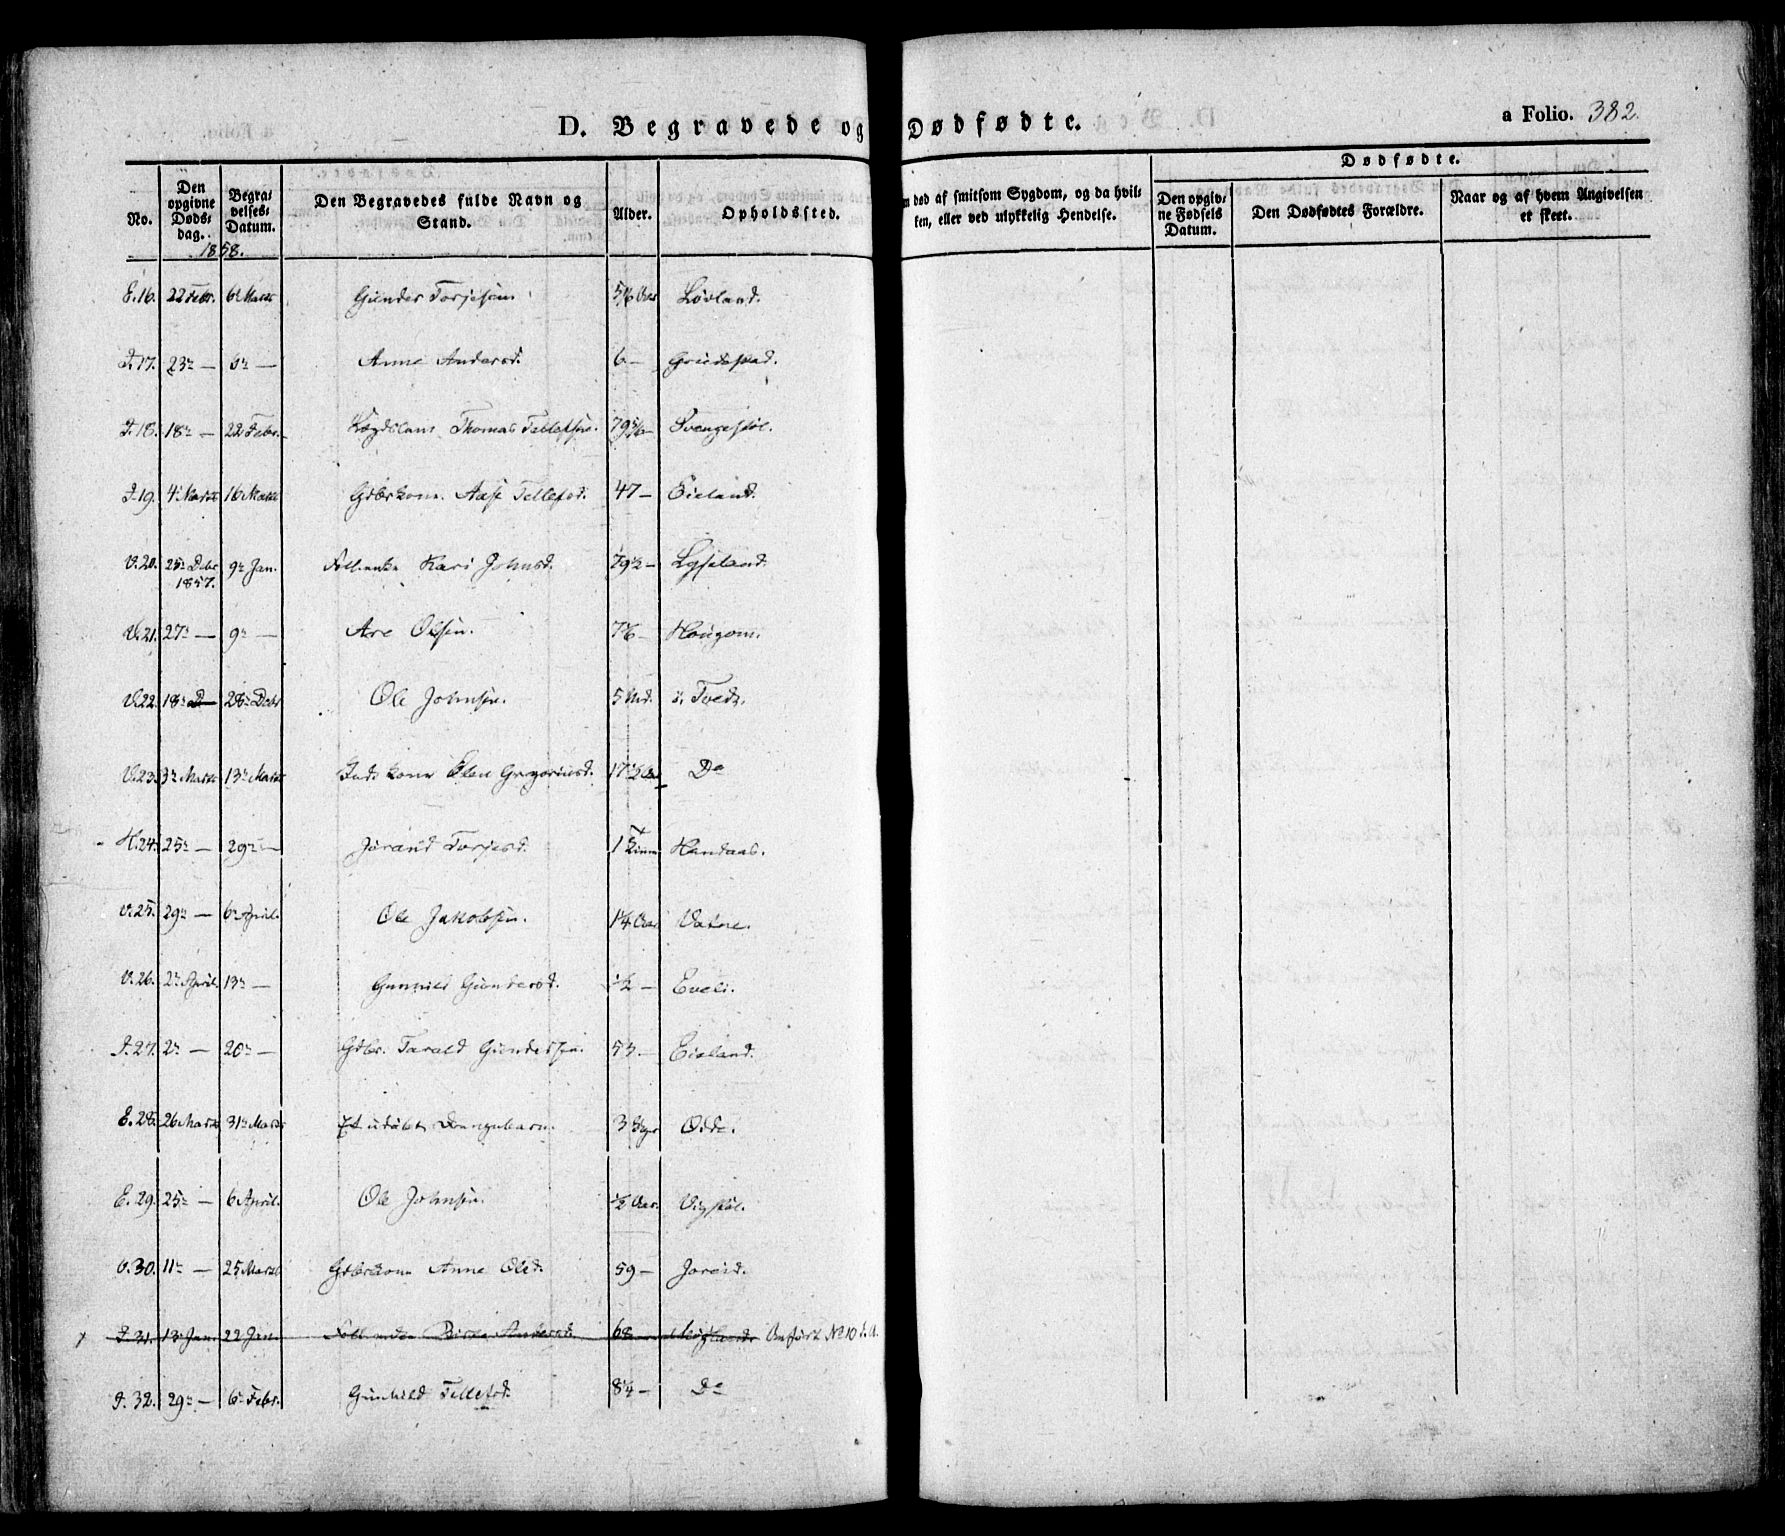 D. Begravede og Dødfødte.
a Folio. 382.
No.
Den opgivne Døds-dag.
Begra-velses-Datum.
Den Begravedes fulde Navn og Stand.
Alder.
Opholdssted.
død af smitsom Sygdom, og da hvil-ken, eller ved ulykkelig Hendelse.
Dødfødte.
Den opgiv-ne Fødsels Datum.
Den Dødfødtes Forældre.
Naar og af hvem Angivelsen et skeet.
1858.
E.16. 22 Febr. 6 Marts Gunder Torjesen Løvland.
I.17. 23 — 6 — Anne Andersd. 6 —
I.18. 18 — 22 Febr. Lægdslem Thomas Tellefsen. Svengestøl.
I.19. 4 Marts 16 Marts Gdbrkone Aase Tellefsd. 47 — Eieland.
V.20. 25 Debr 1857. 9 Jan. Kari Johnsd. 79½ — Lyseland.
V.21. 27 — 9 — Are Olsen. Hougom.
V.22. 18 — 28 Debr Ole Johnsen. 5 Md. Tvedt.
V.23. 3 Marts 13 Marts Inds.kone Elen Gregoriusd. Do
H.24. 25 — 29 — Jorand Torjesd. 1 Time Handaas.
V.25. 29 — 6 April. Ole Jakobsen. 1¼ Aar Vatne.
V.26. 2 April. 13 — Gunnild Gundersd. ½ — Eveli.
I.27. 2 — 20 — Gdbr. Tarald Gundersen. 53 — Eieland.
E.28. 26 Marts 31 Marts Et udøbt Drengebarn. 3 Dage Odde.
E.29. 25 — 6 April. Ole Johnsen. ½ Aar. Vigstøl.
V.30. 11 — 25 Marts Gdbrkone Anne Olsd. 59 — Joreid.
I.31. 13 Jan. 22 Jan. Andersd. 68 Anført No 10 d. A.
I.32. 29 — 6 Febr. Gunhild Tellefsd. 8¼ — Do